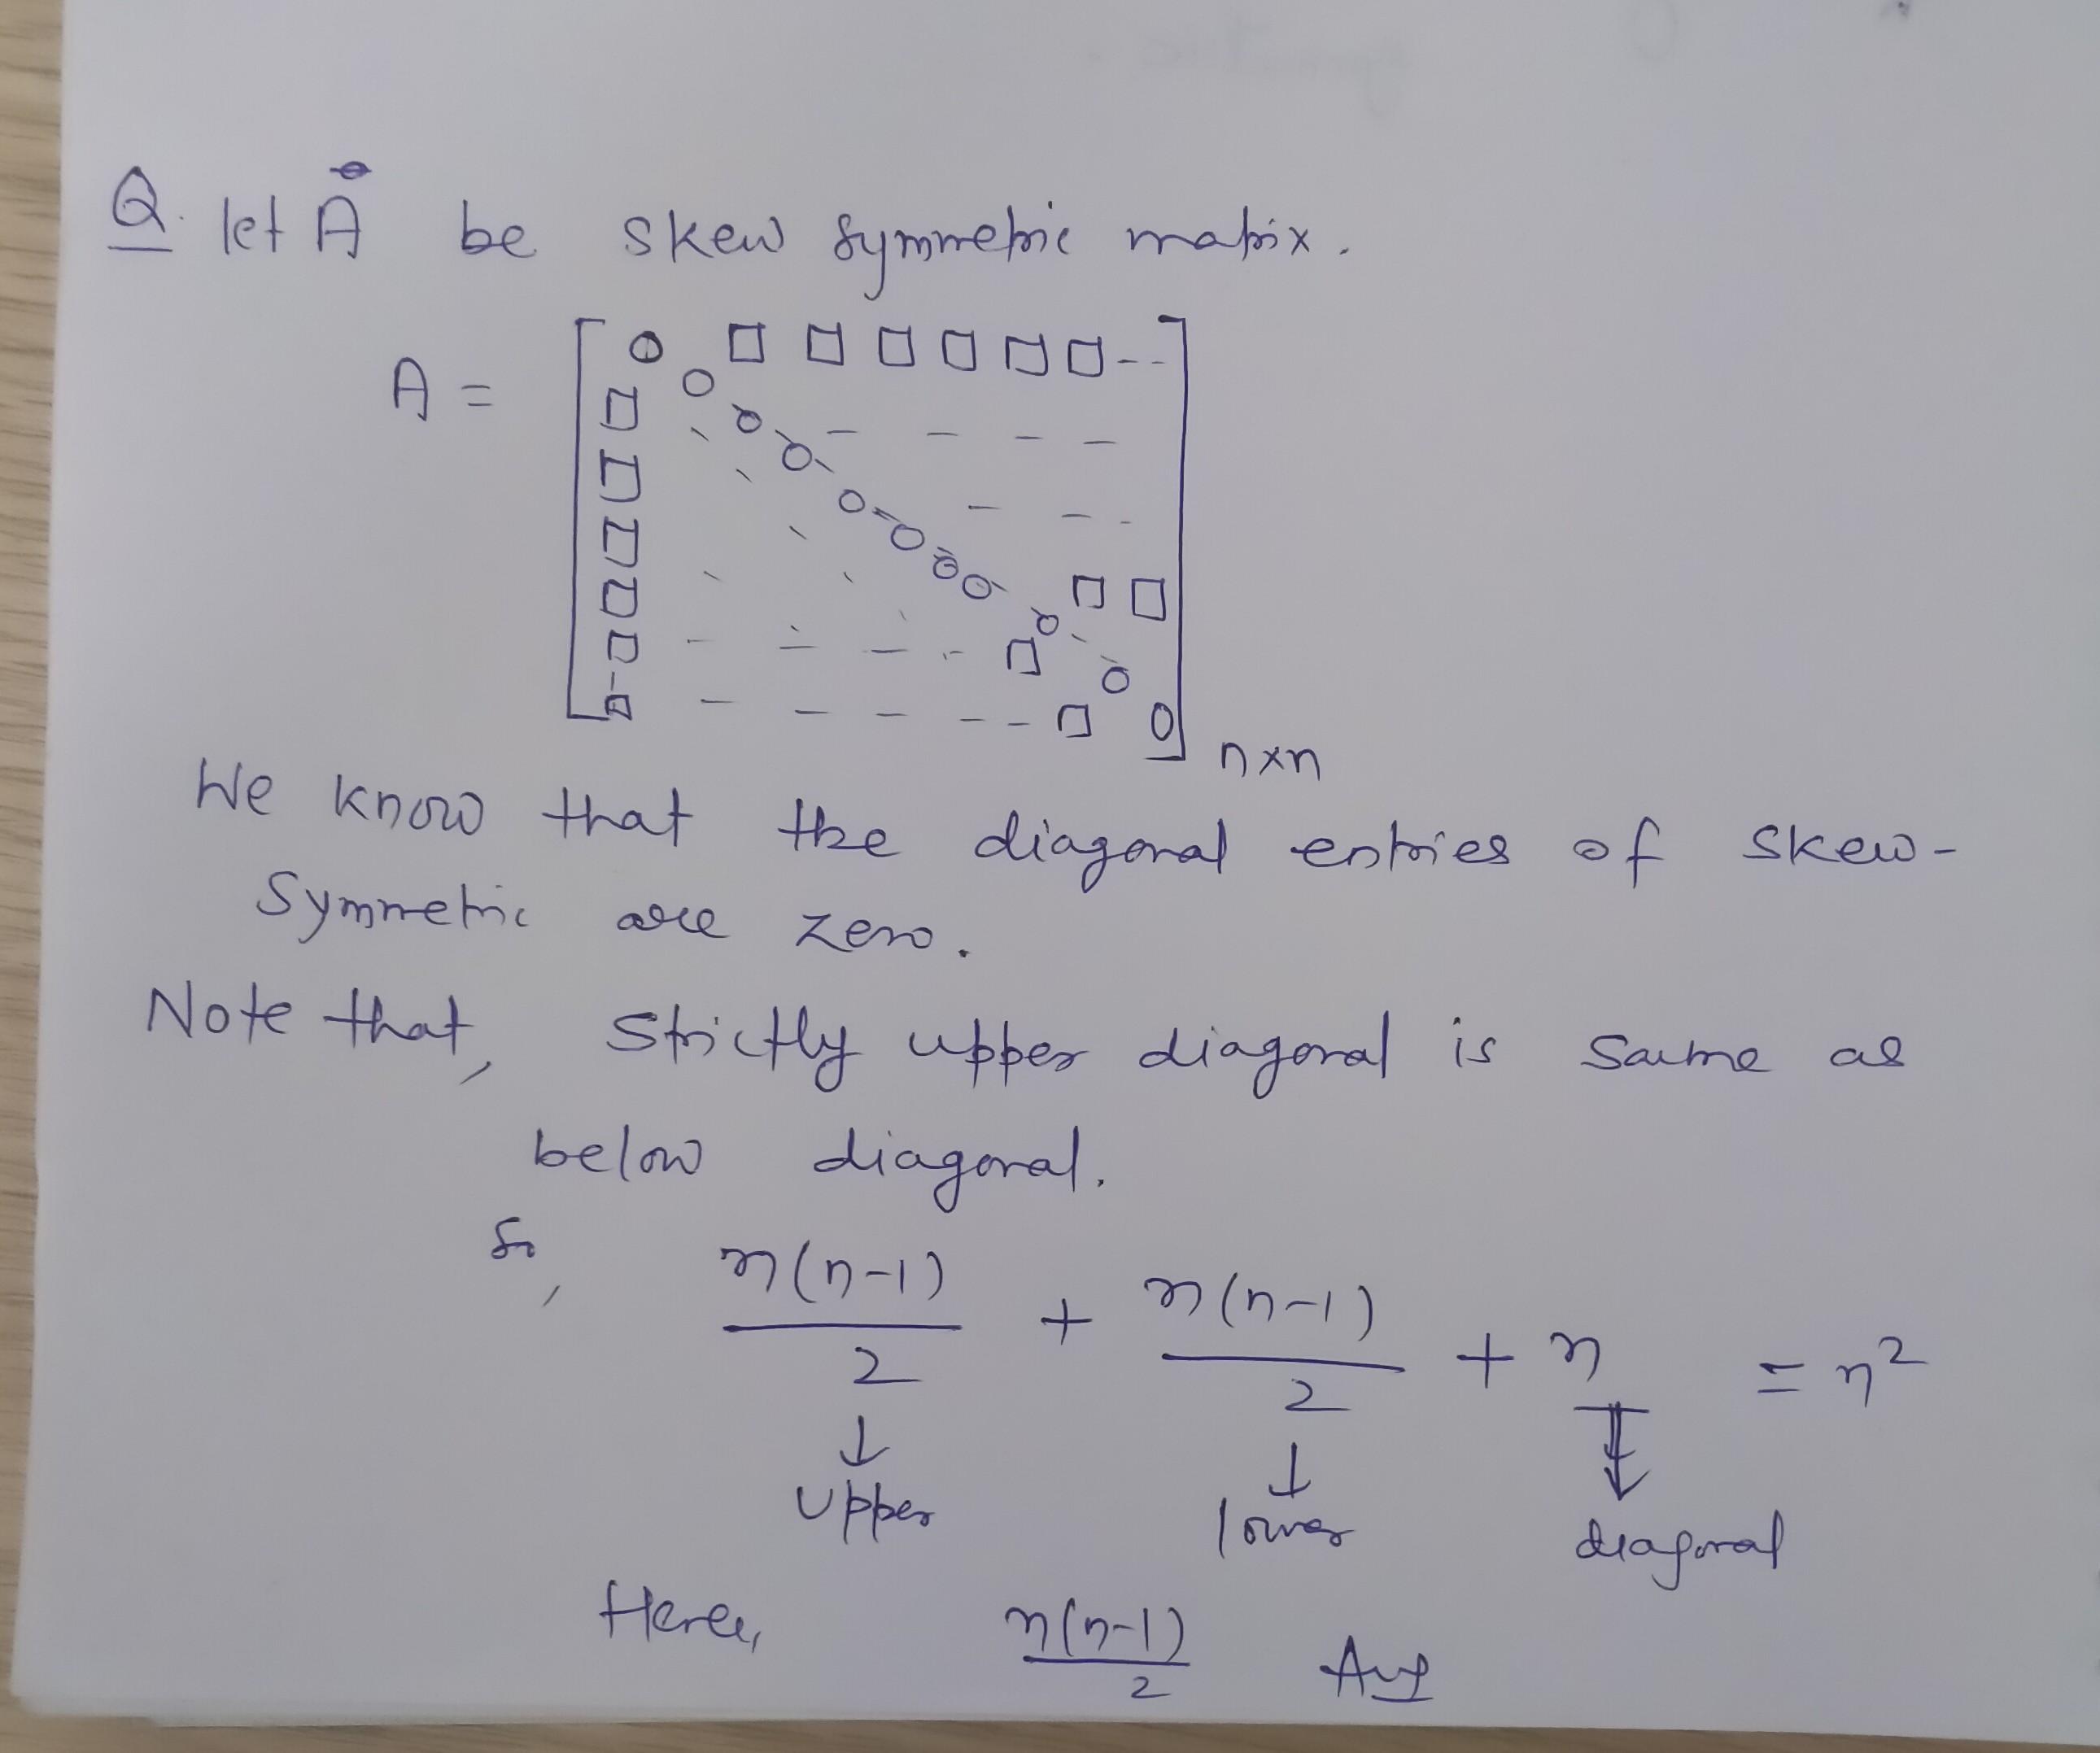 Q. let A be skew symmetric matrix.
A = [ 0 □ □ □ □ □ □ - -
0
□ 0 - - - -
0
□ 0 - - -
□ 0
0 0 □ □
□ 0
□ - - - - □ 0
□ - - - - - □ 0 ] n×n
We know that the diagonal entries of skew-
Symmetric are zero.
Note that, Strictly upper diagonal is same as
below diagonal.
So, n(n-1)/2 + n(n-1)/2 + n = n²
↓ ↓ ↓
Upper lower diagonal
Here, n(n-1)/2 Ans